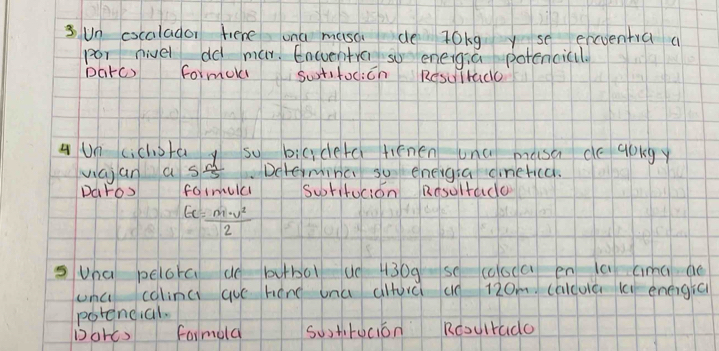 3 Un escalador tiene una masa de 70kg y se encuentra a
por nivel del mar. Encuentra su energia potencial.
Datos Formula Sustitución Resultado
4 Un ciclista y su bicicleta tienen una masa de 90kg y
viajan a 5 m/s. Determina su energia cinetica.
Datos Formula Sustitución Resultado
Ec = m·v²/2
5 Una pelota de futbol de 430g se coloca en la cima de
una colina que tiene una altura de 120m. Calcula la energia
potencial.
Datos Formula Sustitución Resultado